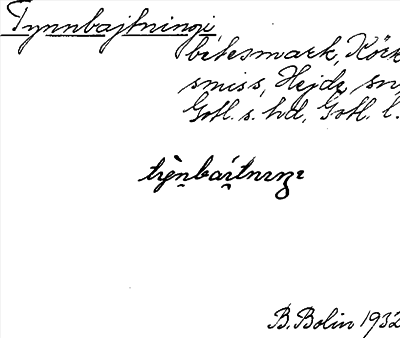 Tynnbajtningi,
betesmark, Körk
smiss, Hejde sn,
Gotl. s. hd, Gotl. l.
B. Bolin 1932